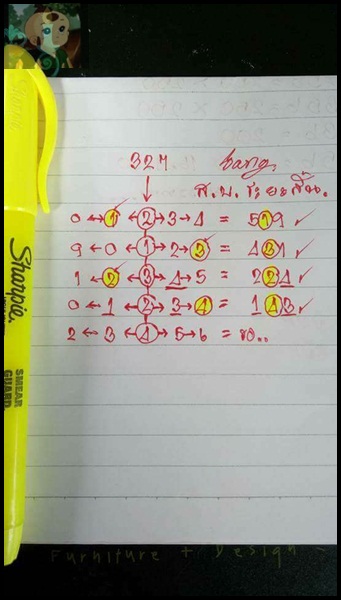 327 bang.
ส.บ. ระยะสั้น.
0 ↔ 1 ← 2 → 3 → 4 = 519 ✓
9 ← 0 ← 1 → 2 → 3 = 431 ✓
1 ← 2 ← 3 → 4 → 5 = 224 ✓
0 ↔ 1 ← 2 → 3 → 4 = 143 ✓
2 ↔ 3 ← 4 → 5 → 6 = รอ..
Sharpie.
SMEAR
GUARD
Furniture + Design